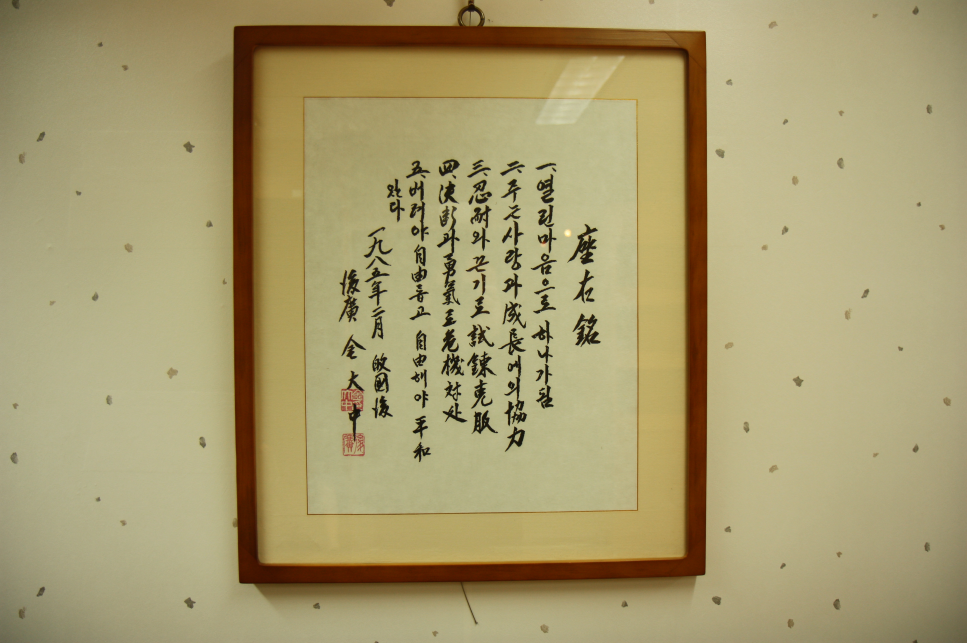 座右銘
一、열린마음으로 하나가됨
二、주는사랑과 成長에의 協力
三、忍耐와 끈기로 試鍊克服
四、決断과 勇氣로 危機対処
五、버려야 自由롭고 自由해야 平和
완다
一九八五年二月 故國後
後廣 金大中